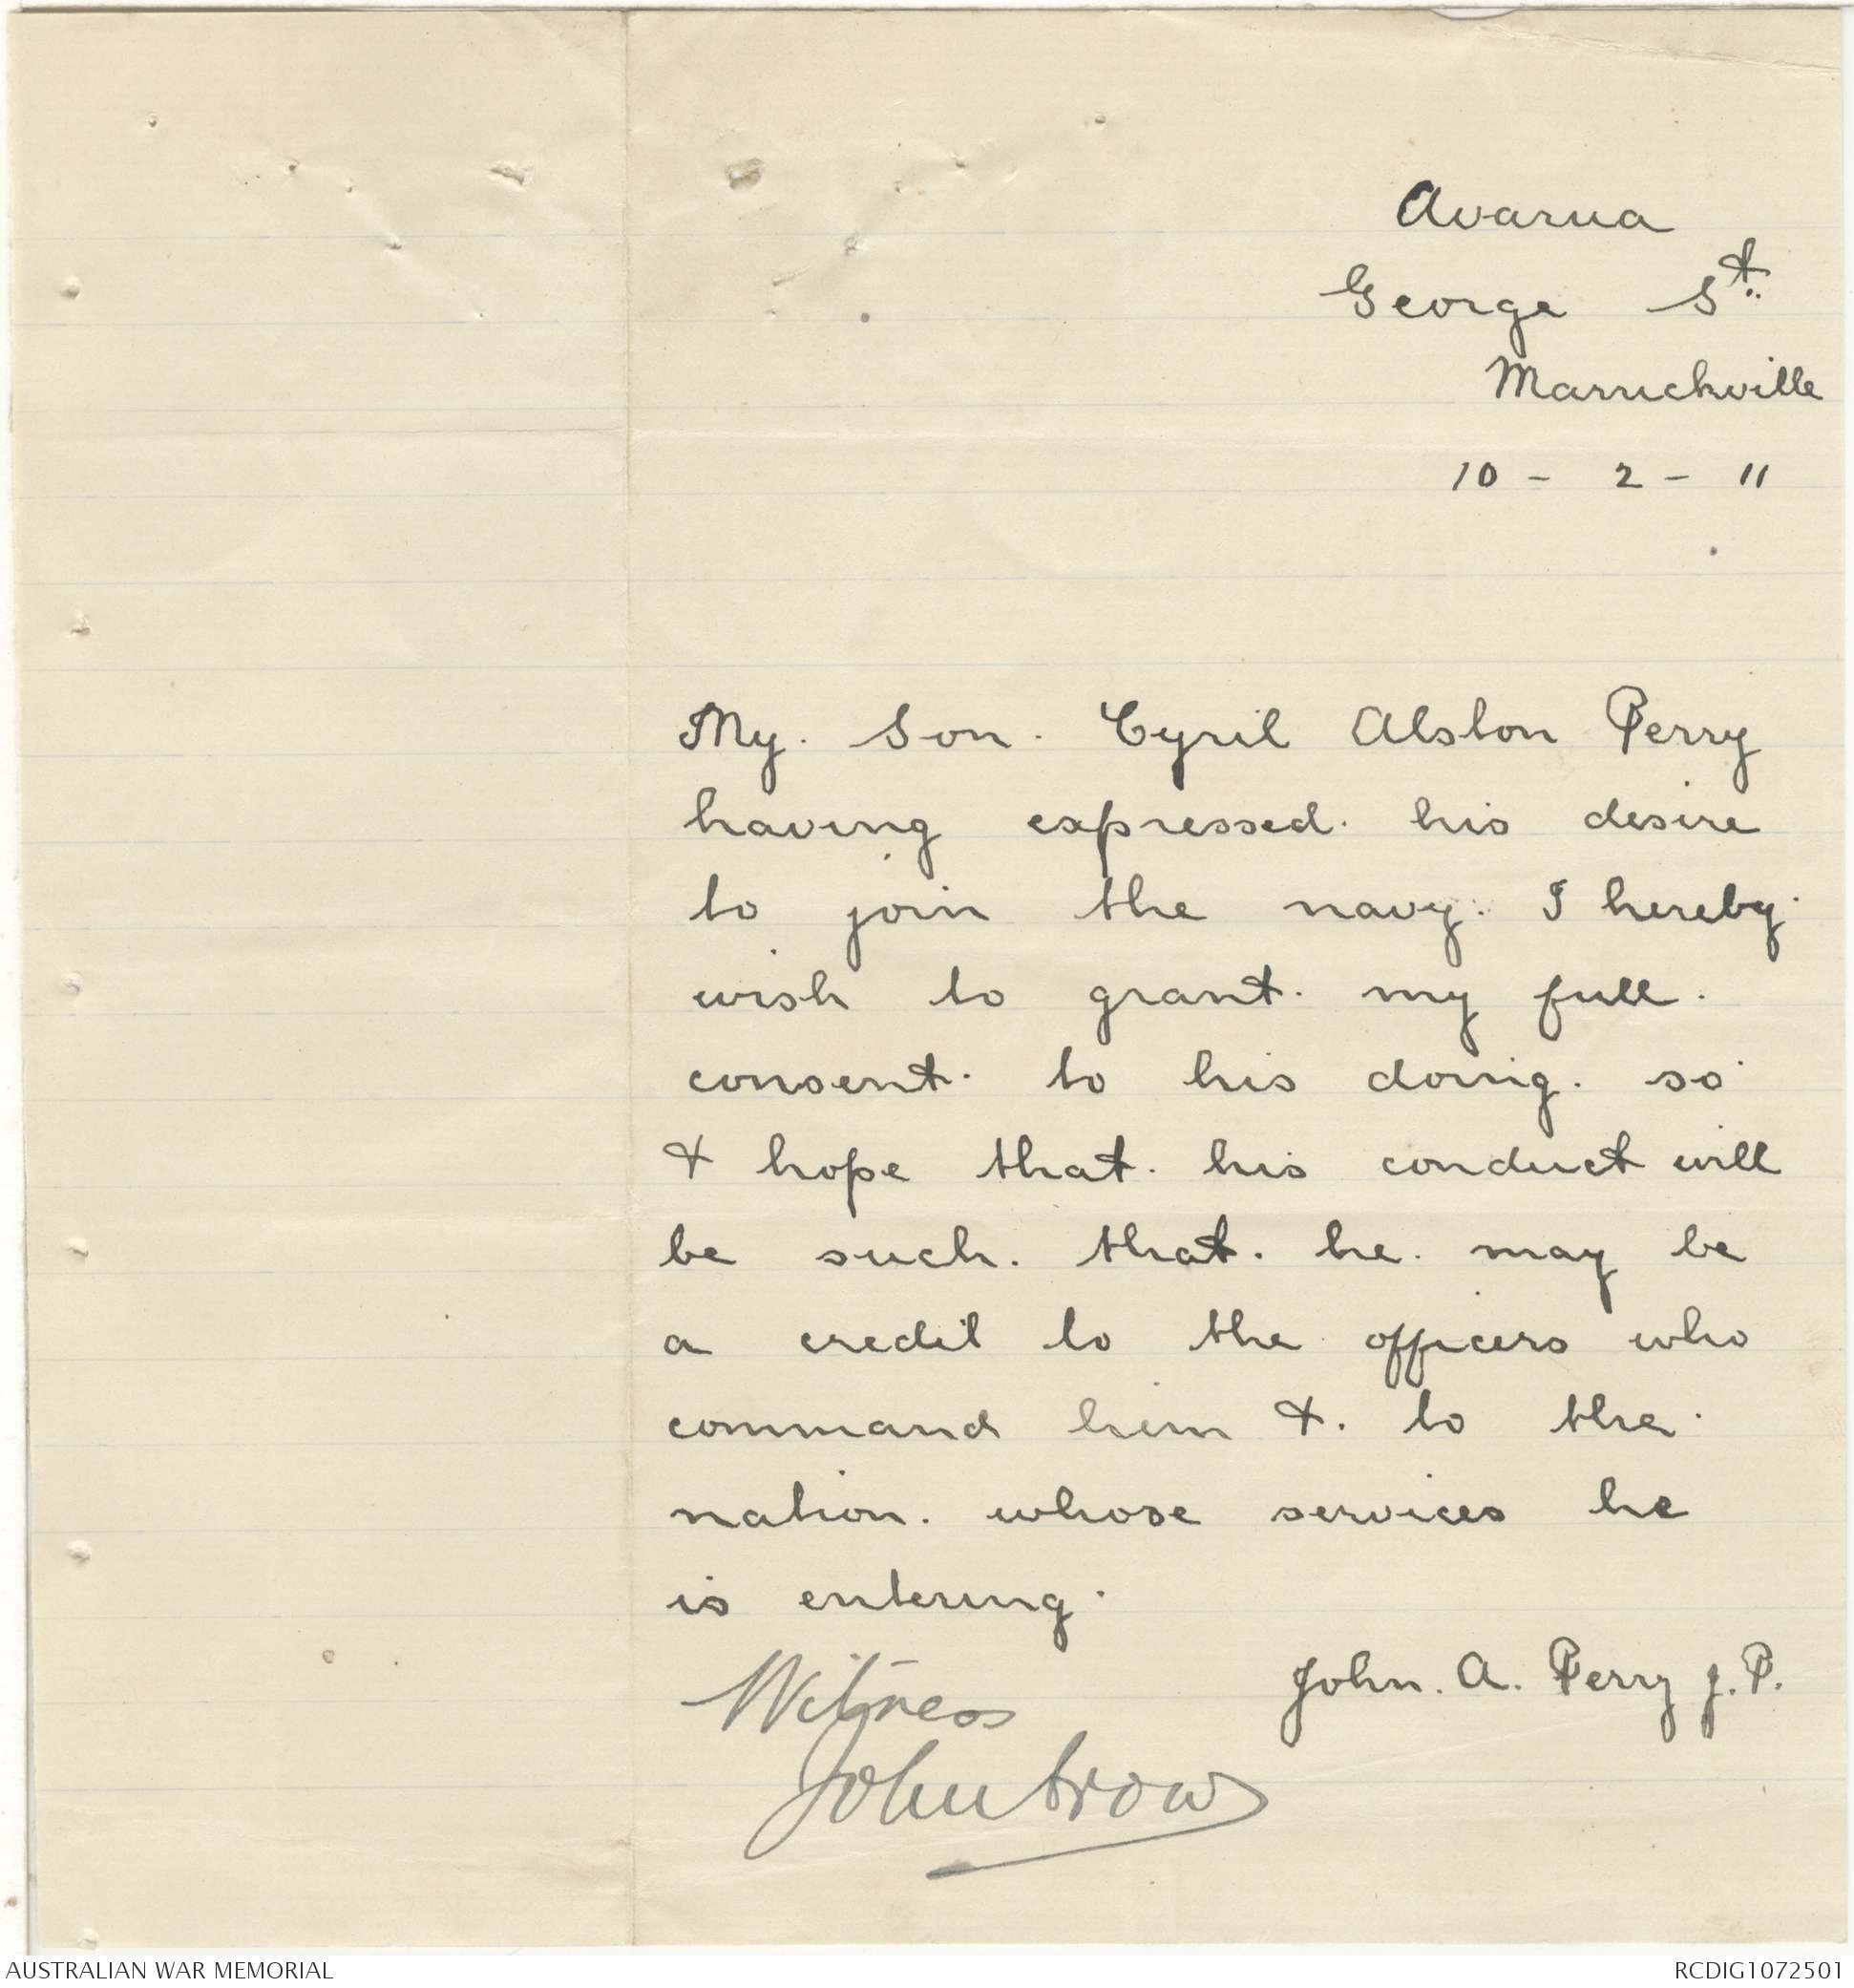 Avarua
George St.
Marrickville
10 - 2 - 11
My. Son. Cyril Alston Perry
having expressed. his desire
to join the navy. I hereby.
wish to grant. my full.
consent. to his doing. so
& hope that. his conduct will
be such. that. he. may be
a credit to the officers who
command him &. to the.
nation. whose services he
is entering.
John. A. Perry J.P.
Witness
John
AUSTRALIAN WAR MEMORIAL
RCDIG1072501